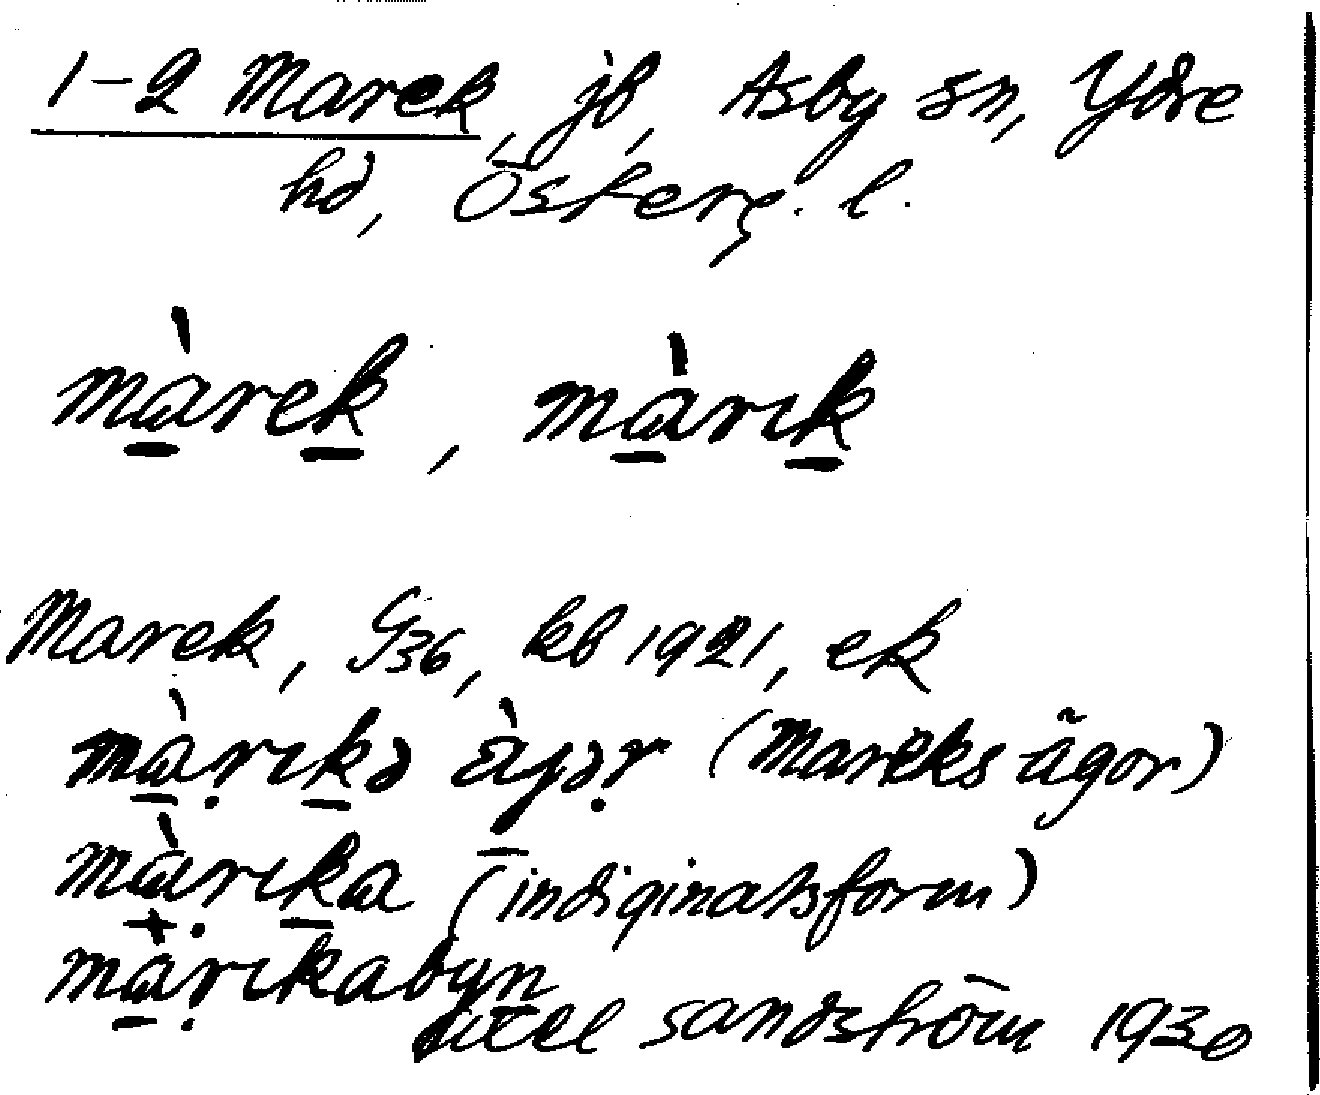 1-2 Marek, jb, Asby sn, Ydre
hd, Österg. l.
màrek, màrık
Marek, G36, kb 1921, ek
màṛıkə àgəṛ (Mareks ägor)
màṛıka (indiginatsform)
màṛıkabyn
Sandström 1930